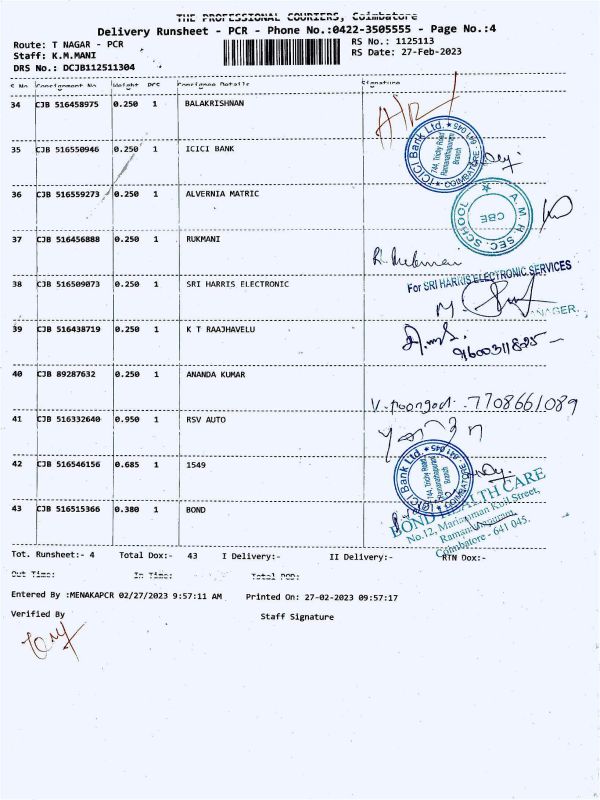 THE PROFESSIONAL COURIERS, Coimbatore
Delivery Runsheet - PCR - Phone No.:0422-3505555 - Page No.:4
Route: T NAGAR - PCR
RS No.: 1125113
Staff: K.M.MANI
RS Date: 27-Feb-2023
DRS No.: DCJB112511304
S No Consignment No Weight PCS Consignee Details Signature
34 CJB 516458975 0.250 1 BALAKRISHNAN
35 CJB 516550946 0.250 1 ICICI BANK
ICICI Bank Ltd. * COIMBATORE - 641 045 *
Trichy Road
Ramanathapuram
Branch
36 CJB 516559273 0.250 1 ALVERNIA MATRIC
A. M. H. SEC. SCHOOL
CBE
37 CJB 516456888 0.250 1 RUKMANI
38 CJB 516509073 0.250 1 SRI HARRIS ELECTRONIC
For SRI HARRIS ELECTRONIC SERVICES
MANAGER.
39 CJB 516438719 0.250 1 K T RAAJHAVELU
9600311825
40 CJB 89287632 0.250 1 ANANDA KUMAR
V. Poongodi. 7708661089
41 CJB 516332640 0.950 1 RSV AUTO
42 CJB 516546156 0.685 1 1549
ICICI Bank Ltd. 641 045
Trichy Road
Ramanathapuram
Branch
43 CJB 516515366 0.380 1 BOND
BOND HEALTH CARE
No.12, Mariamman Koil Street,
Ramanathapuram,
Coimbatore - 641 045.
Tot. Runsheet:- 4 Total Dox:- 43 I Delivery:- II Delivery:- RTN Dox:-
Out Time: In Time: Total POD:
Entered By :MENAKAPCR 02/27/2023 9:57:11 AM Printed On: 27-02-2023 09:57:17
Verified By
Staff Signature